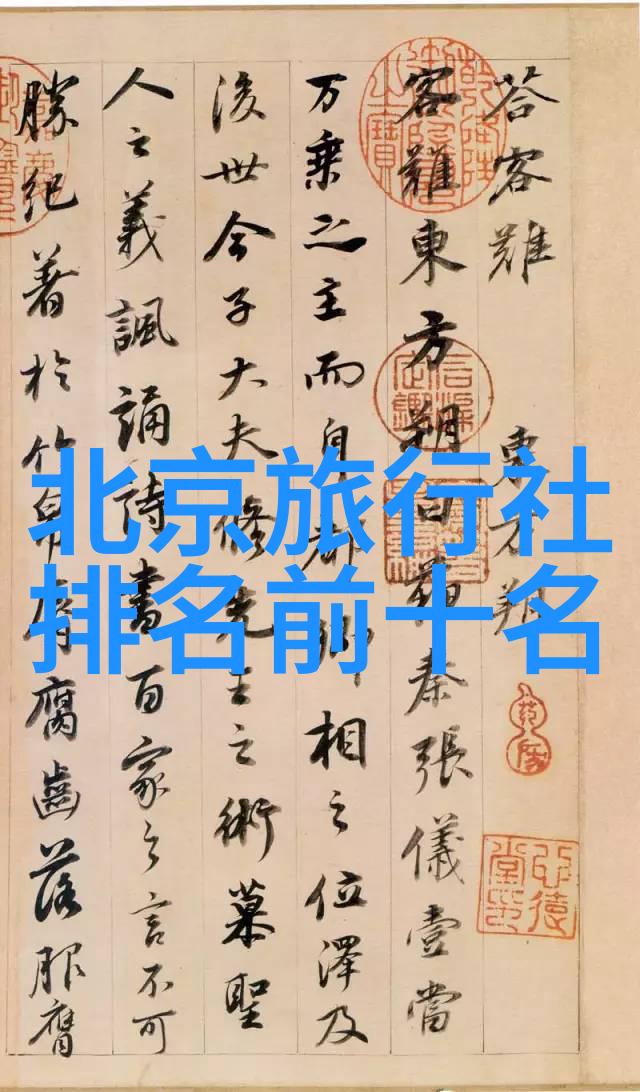 荅客難 東方朔
客難東方朔曰蘇秦張儀壹當
万乗之主而身都卿相之位澤及
後世今子大夫修先王之術慕聖
人之義諷誦詩書百家之言不可
勝紀著於竹帛脣腐齒落服膺
北京旅行社
排名前十名